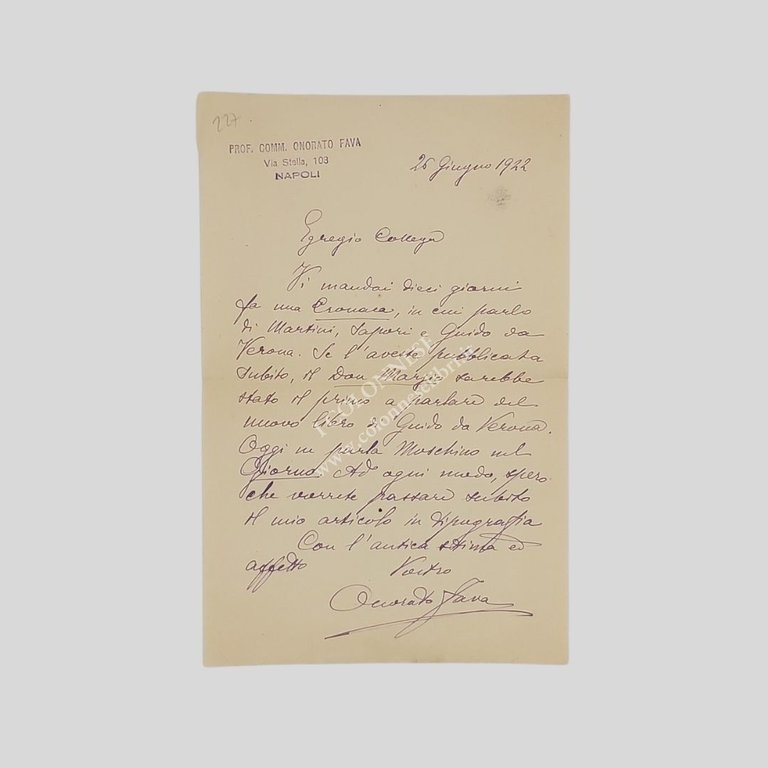 227.
PROF. COMM. ONORATO FAVA
Via Stella, 103
NAPOLI
26 Giugno 1922
Egregio Collega
Vi mandai dieci giorni
fa una Cronaca, in cui parlo
di Martini, Sapori e Guido da
Verona. Se l'aveste pubblicata
subito, il Don Marzio sarebbe
stato il primo a parlare del
nuovo libro di Guido da Verona.
Oggi ne parla Moschino nel
Giorno. Ad ogni modo, spero
che vorrete passare subito
il mio articolo in tipografia
Con l'antica stima ed
affetto Vostro
Onorato Fava
COLONNESE
www.colonneselibri.it